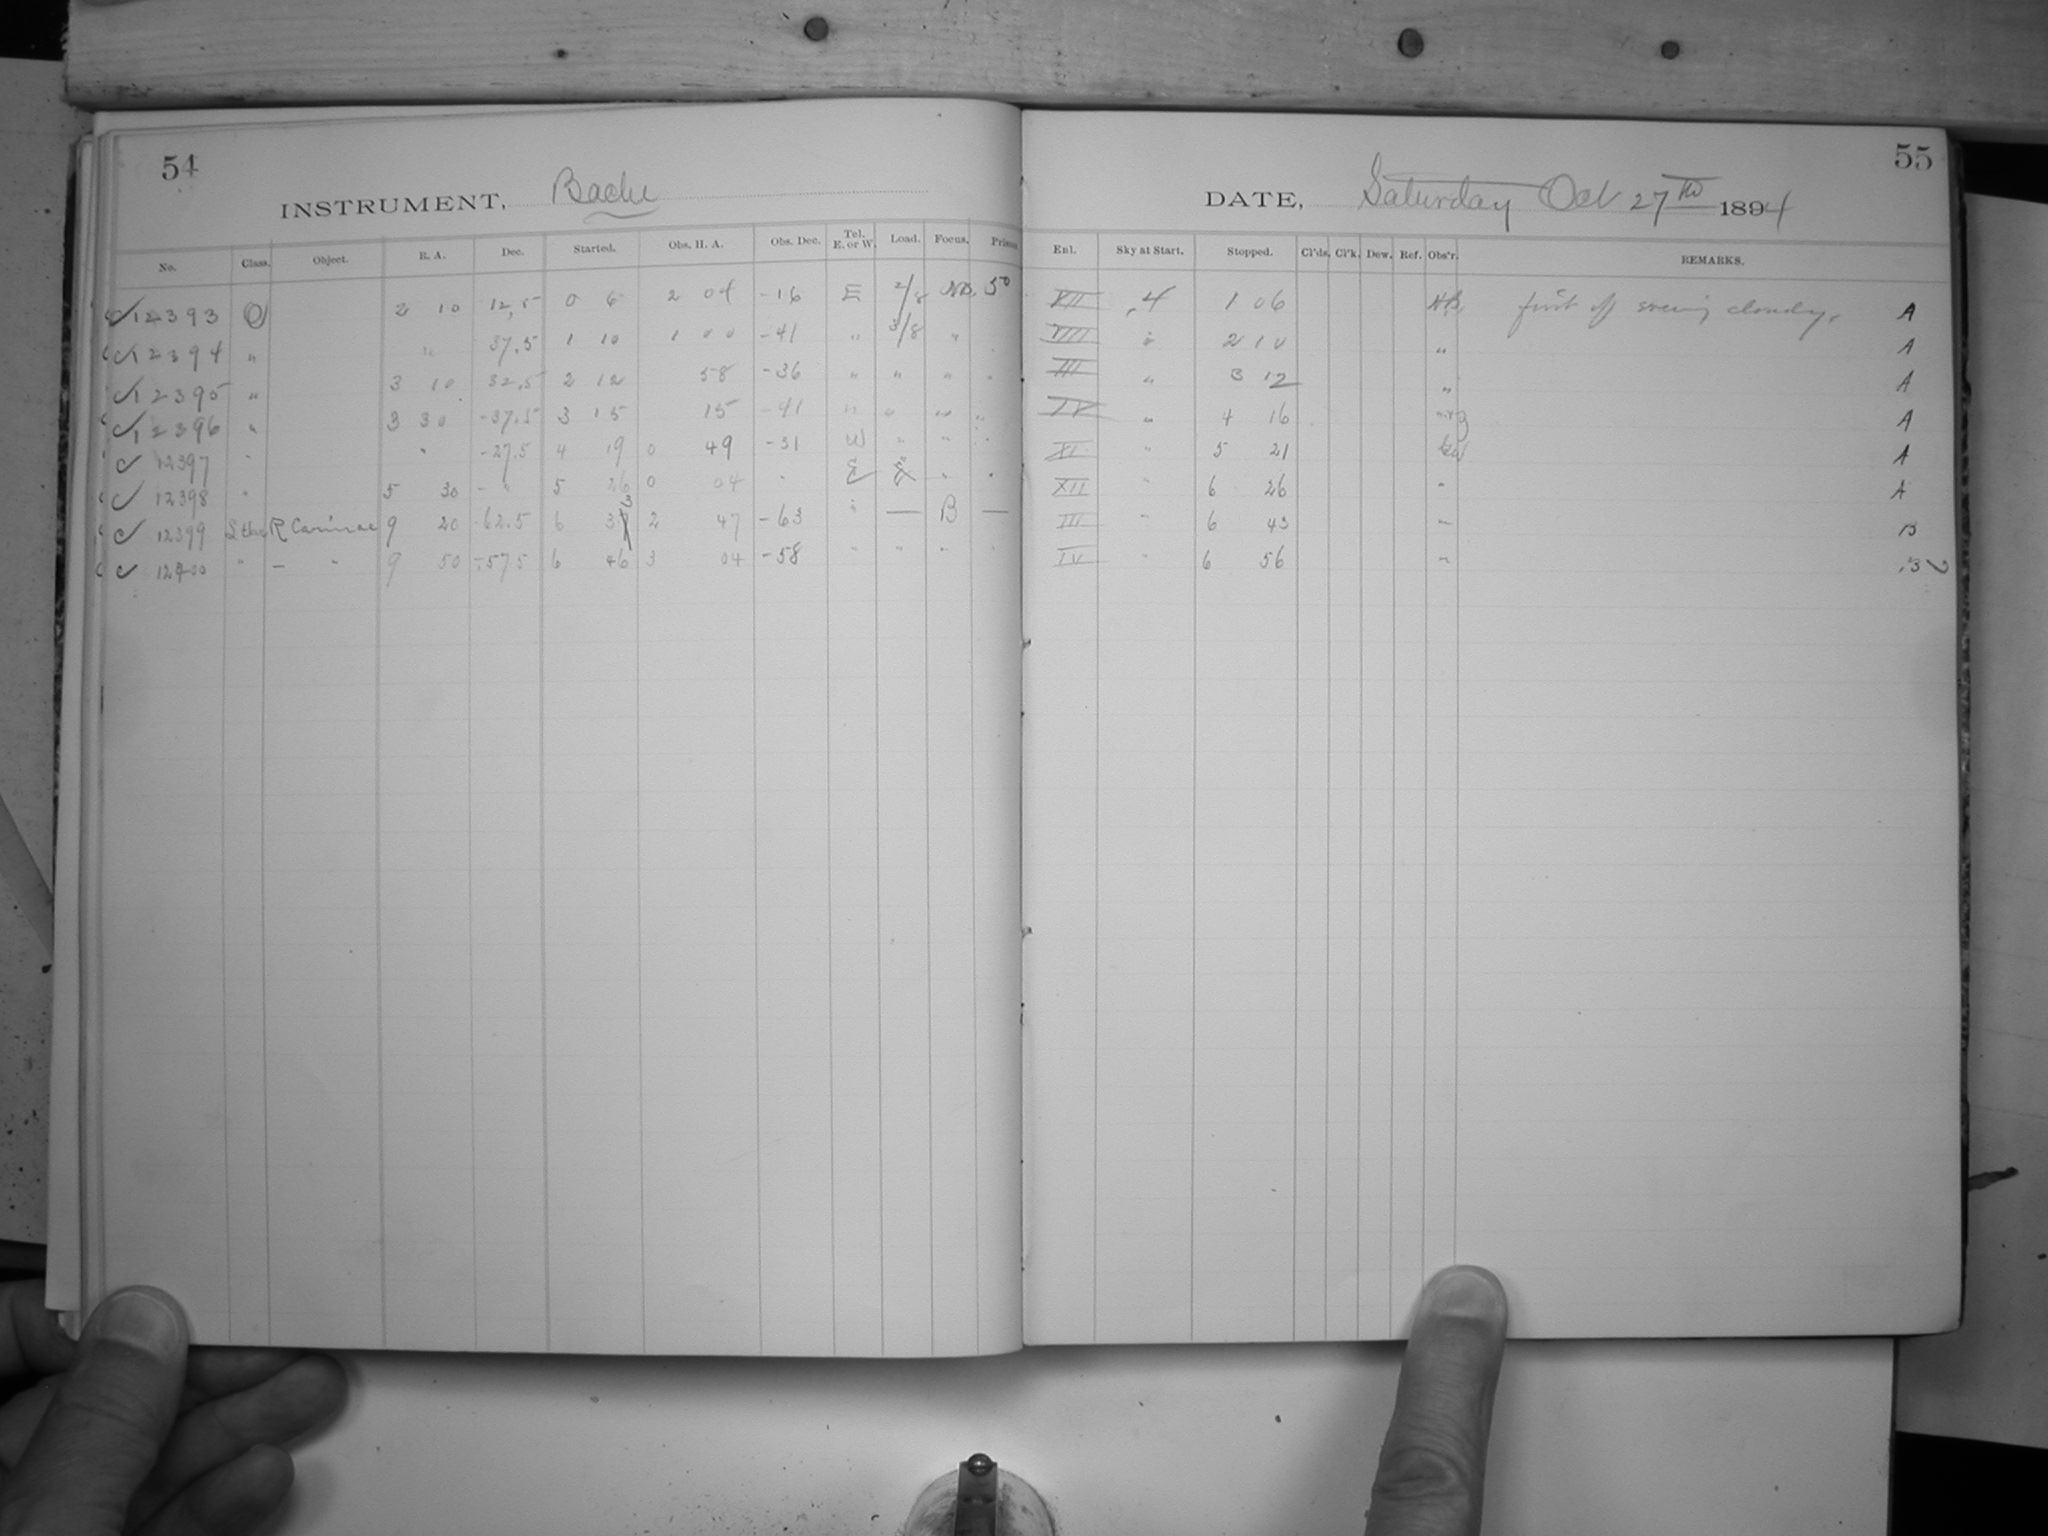 54
INSTRUMENT, Bache
No. Class. Object. R. A. Dec. Started. Obs. H. A. Obs. Dec. Tel. E. or W. Load. Focus. Prism
✓ 12393 O 2 10 12.5 0 6 2 04 -16 E 2/8 50
✓ 12394 " " 37.5 1 10 1 00 -41 " 3/8 "
✓ 12395 " 3 10 32.5 2 12 58 -36 " " " "
✓ 12396 " 3 30 -37.5 3 15 15 -41 " " " "
✓ 12397 " " -27.5 4 19 0 49 -31 W " " "
✓ 12398 " 5 30 - " 5 26 0 04 " E " "
✓ 12399 R Carinae 9 20 62.5 6 33 2 47 -63 " — B —
✓ 12400 " — " 9 50 -57.5 6 46 3 04 -58 " " " "
55
DATE, Saturday Oct 27th 1894
Enl. Sky at Start. Stopped. Cl'ds. Cl'k. Dew. Ref. Obs'r. REMARKS.
XII 4 1 06 first of evening cloudy. A
VIII " 2 10 " A
III " 3 12 " A
IV " 4 16 A
XI " 5 21 A
XII " 6 26 " A
III " 6 43 " B
IV " 6 56 " B ?